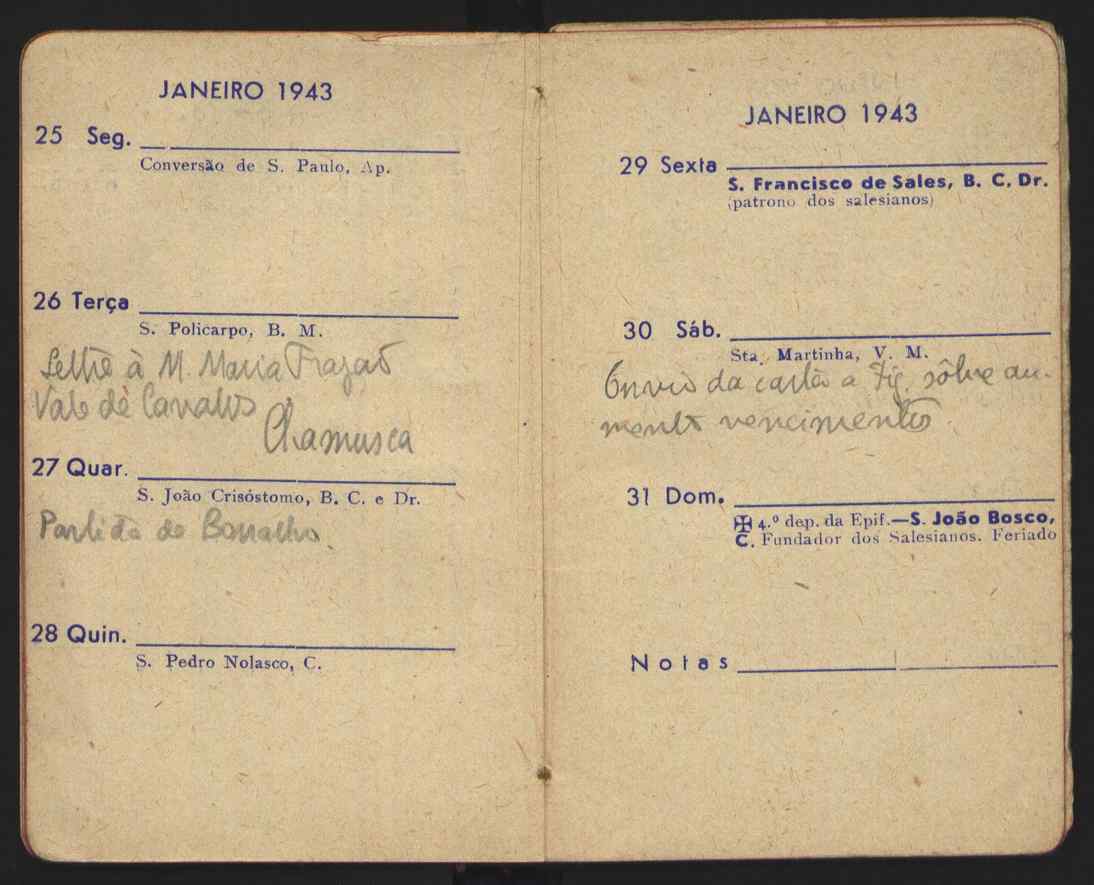 JANEIRO 1943
25 Seg.
Conversão de S. Paulo, Ap.
26 Terça
S. Policarpo, B. M.
à M. Maria Frazão
Vale de Cavalos
Chamusca
27 Quar.
S. João Crisóstomo, B. C. e Dr.
Partida do Borralho
28 Quin.
S. Pedro Nolasco, C.
JANEIRO 1943
29 Sexta
S. Francisco de Sales, B. C. Dr.
(patrono dos salesianos)
30 Sáb.
Sta. Martinha, V. M.
Envio da carta a Fig. sôbre au-
mento vencimento
31 Dom.
✠ 4.º dep. da Epif.—S. João Bosco,
C. Fundador dos Salesianos. Feriado
Notas